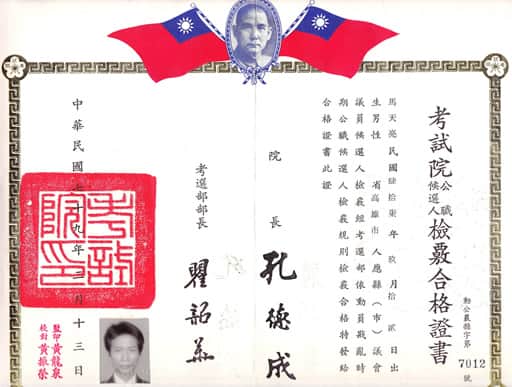 考試院公職候選人檢覈合格證書
字第 7012 號
馬天亮民國肆拾柒年玖月拾貳日出
生男性 省高雄市人應縣(市)議會
議員候選人檢覈經考選部依動員戡亂時
期公職候選人檢覈規則檢覈合格特發給
合格證書此證
院長 孔德成
考選部部長 瞿韶華
中華民國十九年月十三日
考試院印
監印 黃龍泉
校對 黃振榮